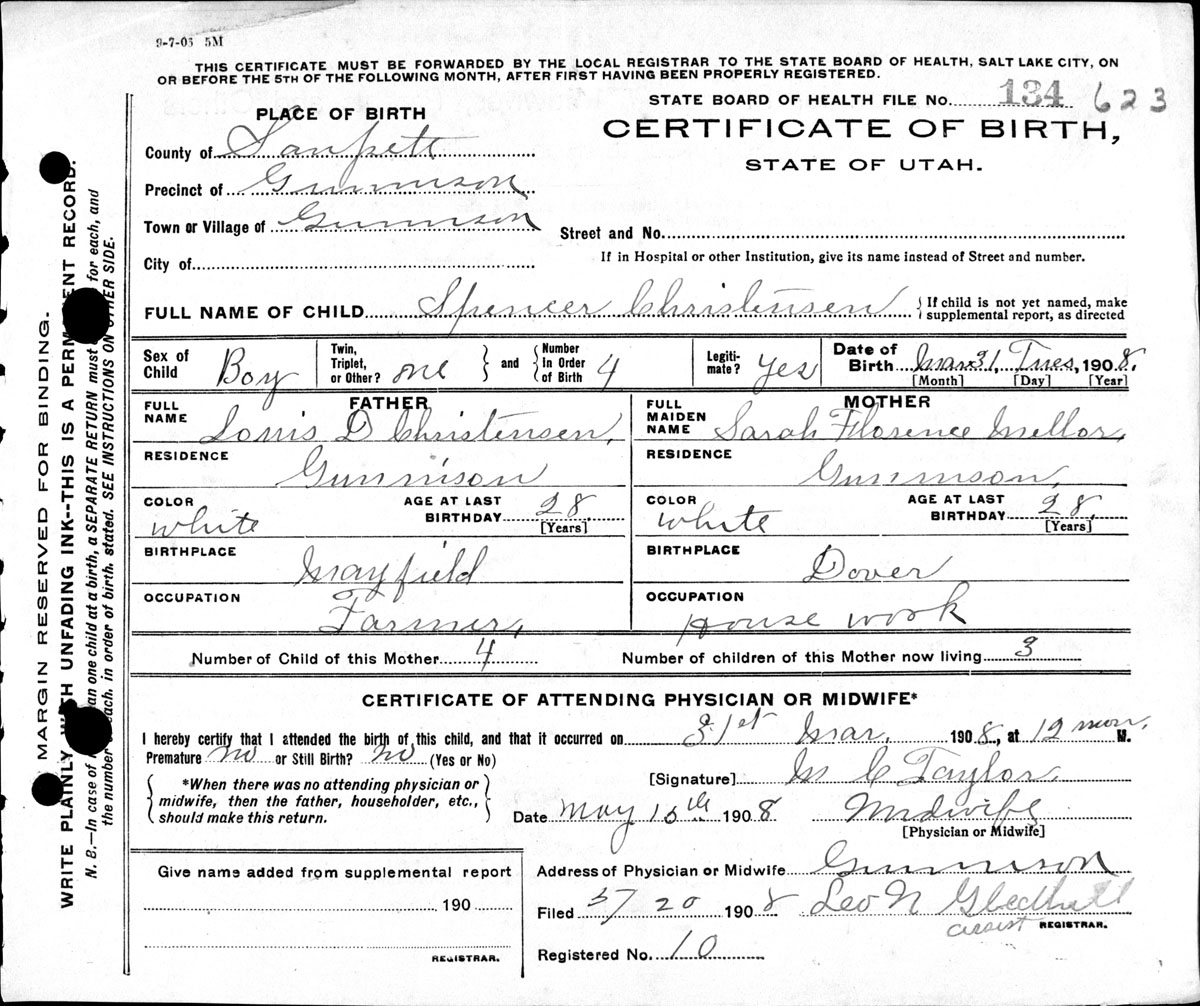 9-7-05 5M
THIS CERTIFICATE MUST BE FORWARDED BY THE LOCAL REGISTRAR TO THE STATE BOARD OF HEALTH, SALT LAKE CITY, ON
OR BEFORE THE 5TH OF THE FOLLOWING MONTH, AFTER FIRST HAVING BEEN PROPERLY REGISTERED.
STATE BOARD OF HEALTH FILE NO. 134 623
PLACE OF BIRTH
CERTIFICATE OF BIRTH,
STATE OF UTAH.
County of Sanpete
Precinct of Gunnison
Town or Village of Gunnison
Street and No.
City of
If in Hospital or other Institution, give its name instead of Street and number.
FULL NAME OF CHILD Spencer Christensen {If child is not yet named, make
supplemental report, as directed
Sex of Child Boy
Twin, Triplet, or Other? one } and { Number In Order of Birth 4
Legitimate? Yes
Date of Birth Mar 31, Tues, 1908.
[Month] [Day] [Year]
FATHER
FULL NAME Louis D Christensen,
RESIDENCE Gunnison
COLOR white
AGE AT LAST BIRTHDAY 28 [Years]
BIRTHPLACE Mayfield
OCCUPATION Farmer,
MOTHER
FULL MAIDEN NAME Sarah Florence Mellor,
RESIDENCE Gunnison,
COLOR White
AGE AT LAST BIRTHDAY 28. [Years]
BIRTHPLACE Dover
OCCUPATION House work
Number of Child of this Mother 4
Number of children of this Mother now living 3
CERTIFICATE OF ATTENDING PHYSICIAN OR MIDWIFE*
I hereby certify that I attended the birth of this child, and that it occurred on 31st Mar. 1908, at 12 M.
Premature no or Still Birth? no (Yes or No)
{*When there was no attending physician or
midwife, then the father, householder, etc.,
should make this return.}
[Signature] M C Taylor
Date May 15th 1908
Midwife
[Physician or Midwife]
Address of Physician or Midwife Gunnison
Give name added from supplemental report
190
REGISTRAR.
Filed 5/20 1908 Leo N Gledhill
assist REGISTRAR.
Registered No. 10
MARGIN RESERVED FOR BINDING.
WRITE PLAINLY WITH UNFADING INK--THIS IS A PERMANENT RECORD.
N. B.—In case of than one child at a birth, a SEPARATE RETURN must for each, and
the number each, in order of birth, stated. SEE INSTRUCTIONS ON OTHER SIDE.